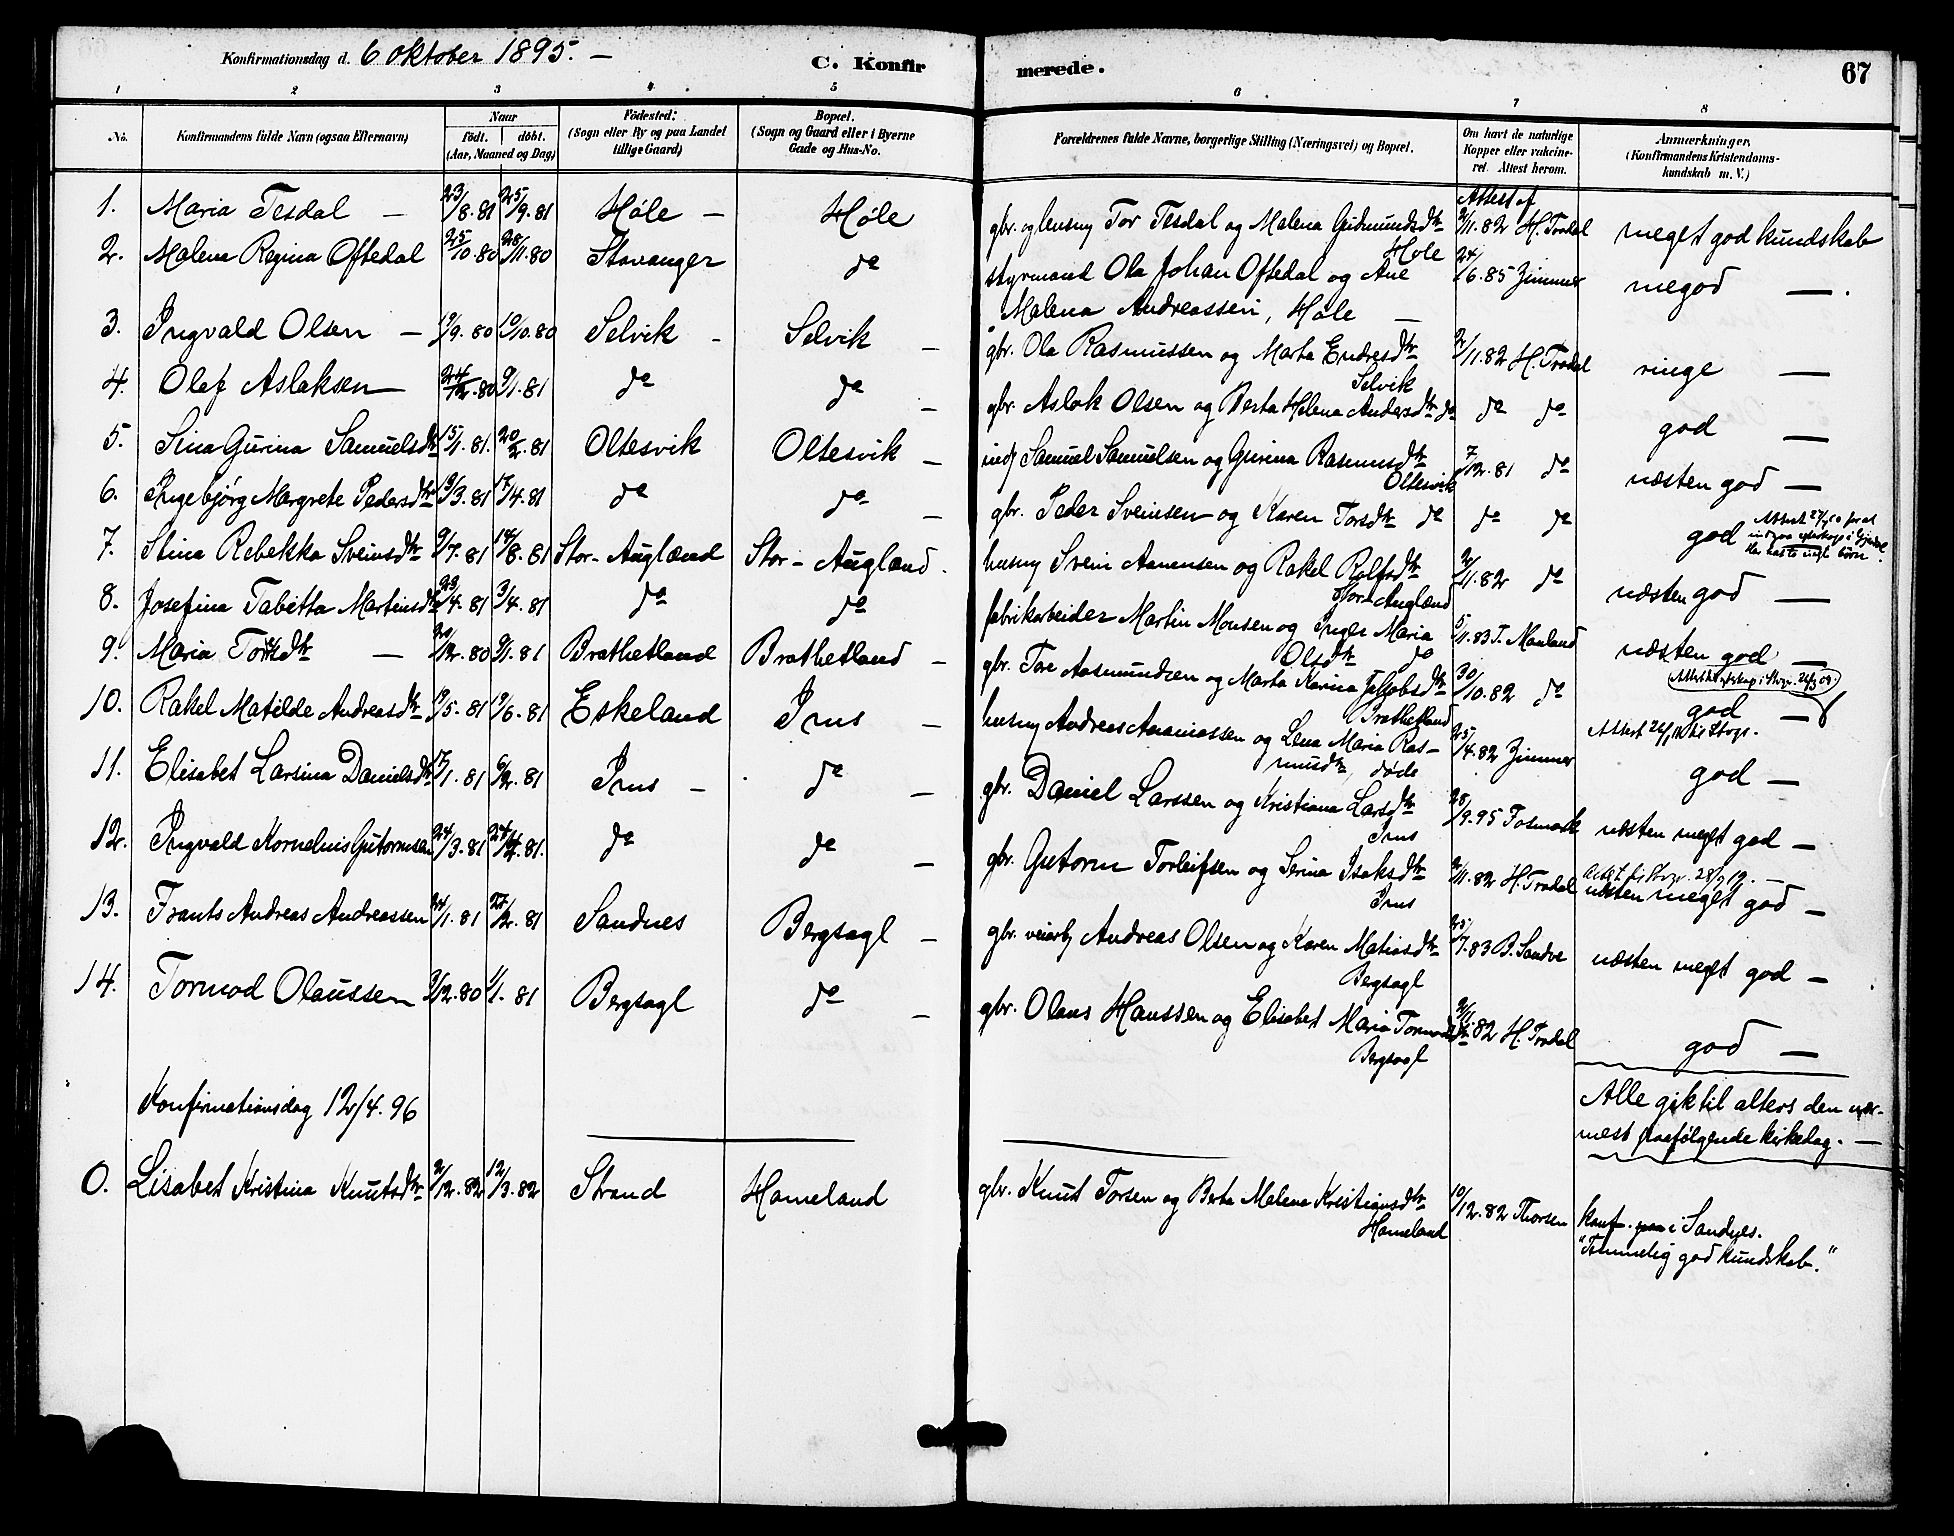 Konfirmationsdag d. 6 oktober 1895. —
C. Konfirmerede.
67
1 2 3 4 5 6 7 8
No.
Konfirmandens fulde Navn (ogsaa Efternavn)
Naar
født. døbt.
(Aar, Maaned og Dag)
Fødested:
(Sogn eller By og paa Landet
tillige Gaard)
Bopæl.
(Sogn og Gaard eller i Byerne
Gade og Hus-No.
Forældrenes fulde Navne, borgerlige Stilling (Næringsvei) og Bopæl.
Om havt de naturlige
Kopper eller vakcine-
ret Attest herom.
Anmærkninger,
(Konfirmandens Kristendoms-
kundskab m. V.)
Attest af
1. Maria Tesdal — 23/8.81 25/9.81 Høle — Høle gbr. og husmg Tor Tesdal og Malena Gudmundsdtr Høle 2/11.82 H. Tradal meget god kundskab
2. Malena Regina Oftedal 25/10.80 28/11.80 Stavanger do styrmand Ola Johan Oftedal og Ane
Malena Andreassen, Høle — 24/6.85 Zimmer megod —.
3. Ingvald Olsen — 19/9.80 10/10.80 Selvik - Selvik — gbr. Ola Rasmussen og Marta Endresdtr
Selvik 2/11.82 H. Tradal ringe —
4. Olaf Aslaksen — 24/12.80 9/1.81 do do — gbr. Aslak Olsen og Berta Helena Andersdtr do do do god —
5. Sina Gurina Samuelsdtr 15/1.81. 20/2.81 Oltesvik Oltesvik — inds Samuel Samuelsen og Gurina Rasmusdtr
Oltesvik 7/12.81 do næsten god —
6. Ingebjørg Margrete Pedersdtr 19/3.81 17/4.81 do do — gbr. Peder Sveinsen og Karen Torsdtr do do do god
7. Stina Rebekka Sveinsdtr 9/7.81 14/8.81 Stor-Augland Stor-Augland. husmg Svein Aanensen og Rakel Rolfsdtr
Stor-Augland 2/11.82 do næsten god —
8. Josefina Tabitta Martinsdtr 23/4.81 3/4.81 do do fabrikarbeider Martin Monsen og Inger Maria
Olsdtr do 5/11.83 T. Nauland næsten god —
9. Maria Toresdtr — 20/12.80 9/1.81 Brathetland Brathetland — gbr. Tore Aasmundsen og Marta Karina Jakobsdtr
Brathetland 30/10.82 do god —
10. Rakel Matilde Andreasdtr 19/5.81 19/6.81 Eskeland Ims — husmg Andreas Ananiassen og Lena Maria Ras-
musdtr, døde 25/4.82 Zimmer god —
11. Elisabet Larsina Danielsdtr 17/1.81 6/2.81 Ims — do — gbr. Daniel Larssen og Kristiana Larsdtr
Ims 28/9.95 Fosmark næsten meget god —
12. Ingvald Kornelius Gutormsen 24/3.81 24/4.81. do do — gbr. Gutorm Torleifsen og Serina Isaksdtr
Ims 2/11.82 H. Tradal næsten meget god —
13. Frants Andreas Andreassen 24/1.81 27/2.81 Sandnes Bergsagl — gbr. veiarb Andreas Olsen og Karen Matiasdtr
Bergsagl 25/7.83 B. Sandve næsten meget god —
14. Tormod Olaussen 3/12.80 1/1.81 Bergsagl do — gbr. Olaus Hanssen og Elisabet Maria Tormodsdtr
Bergsagl 2/11.82 H. Tradal god —
Konfirmationsdag 12/4.96
Alle gik til alters den nær-
mest paafølgende kirkedag. —
0. Lisabet Kristina Knutsdtr 2/12.82 12/3.82 Strand Hameland gbr. Knut Torsen og Berta Malena Kristiansdtr
Hameland 19/12.82 Thorsen konf. i Sandnes.
"Temmelig god kundskab."